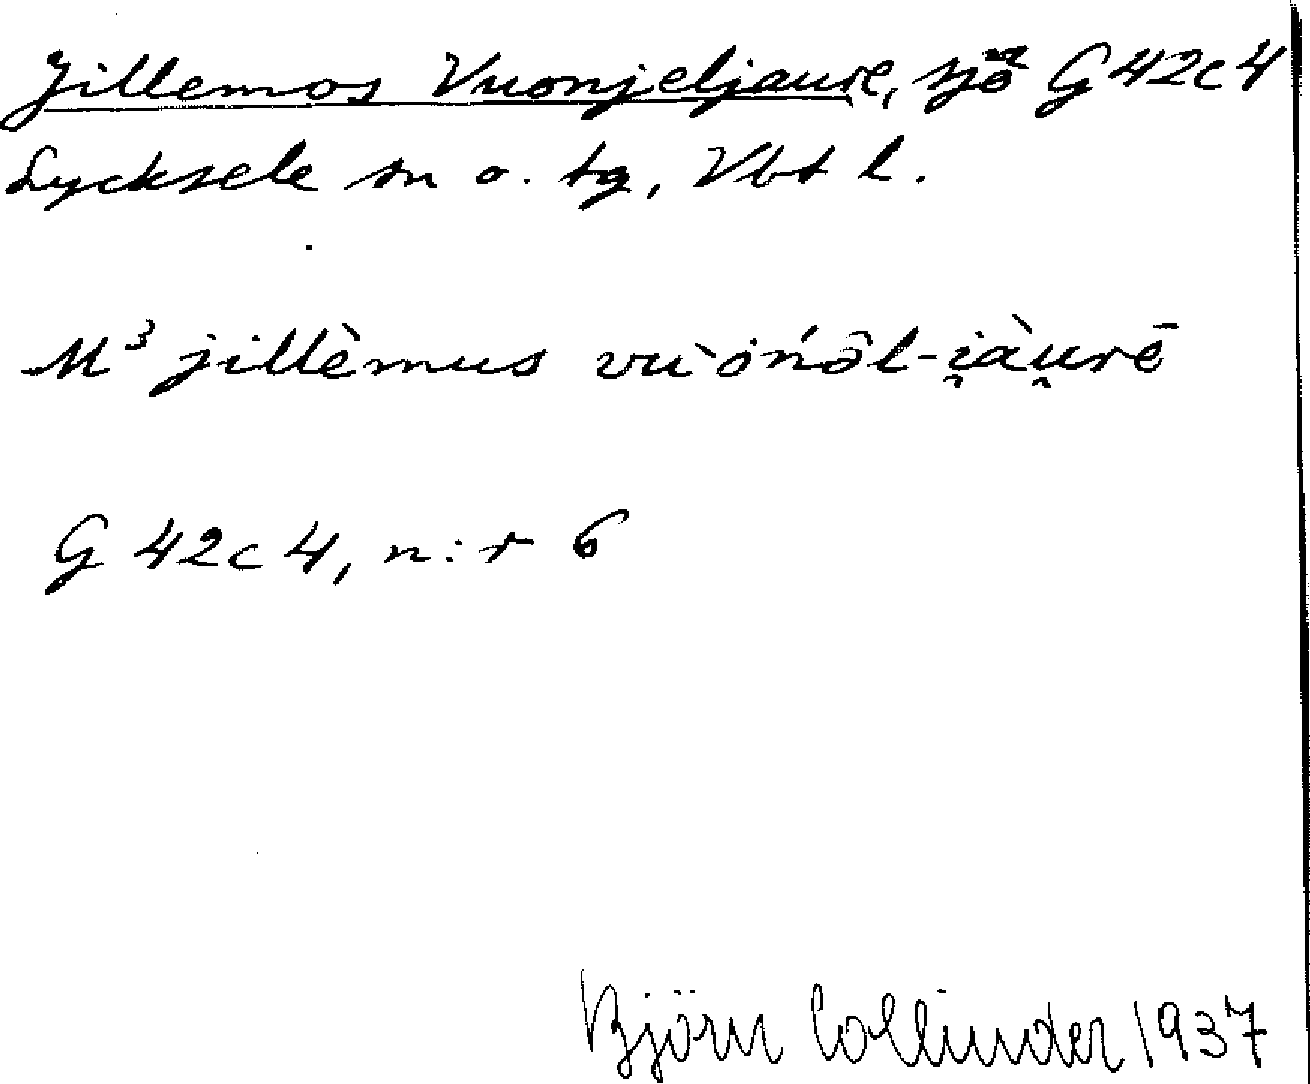 Jillemos Vuonjeljaure, sjö G 42c4
Lycksele sn o. tg, Vbt l.
M³ jillèmus vu`ȯńə̂l-i̯àu̯rē
G 42c 4, n:r 6
Björn Collinder 1937